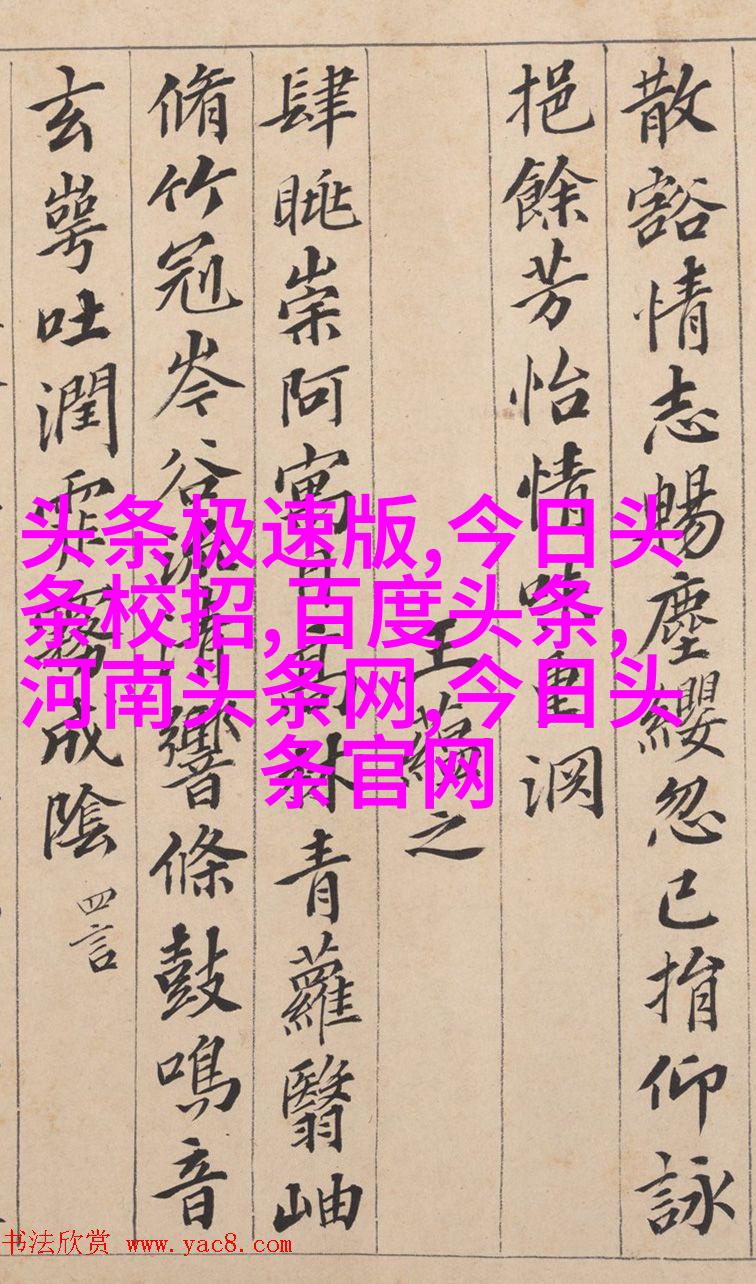 散豁情志暢塵纓忽已捐仰詠
挹餘芳怡情味重淵
王蘊之
肆眺崇阿寓目高林青蘿翳岫
脩竹冠岑谷流清響條鼓鳴音
玄崿吐潤霏霧成陰
四言
头条极速版,今日头
条校招,百度头条,
河南头条网,今日头
条官网
书法欣赏 www.yac8.com